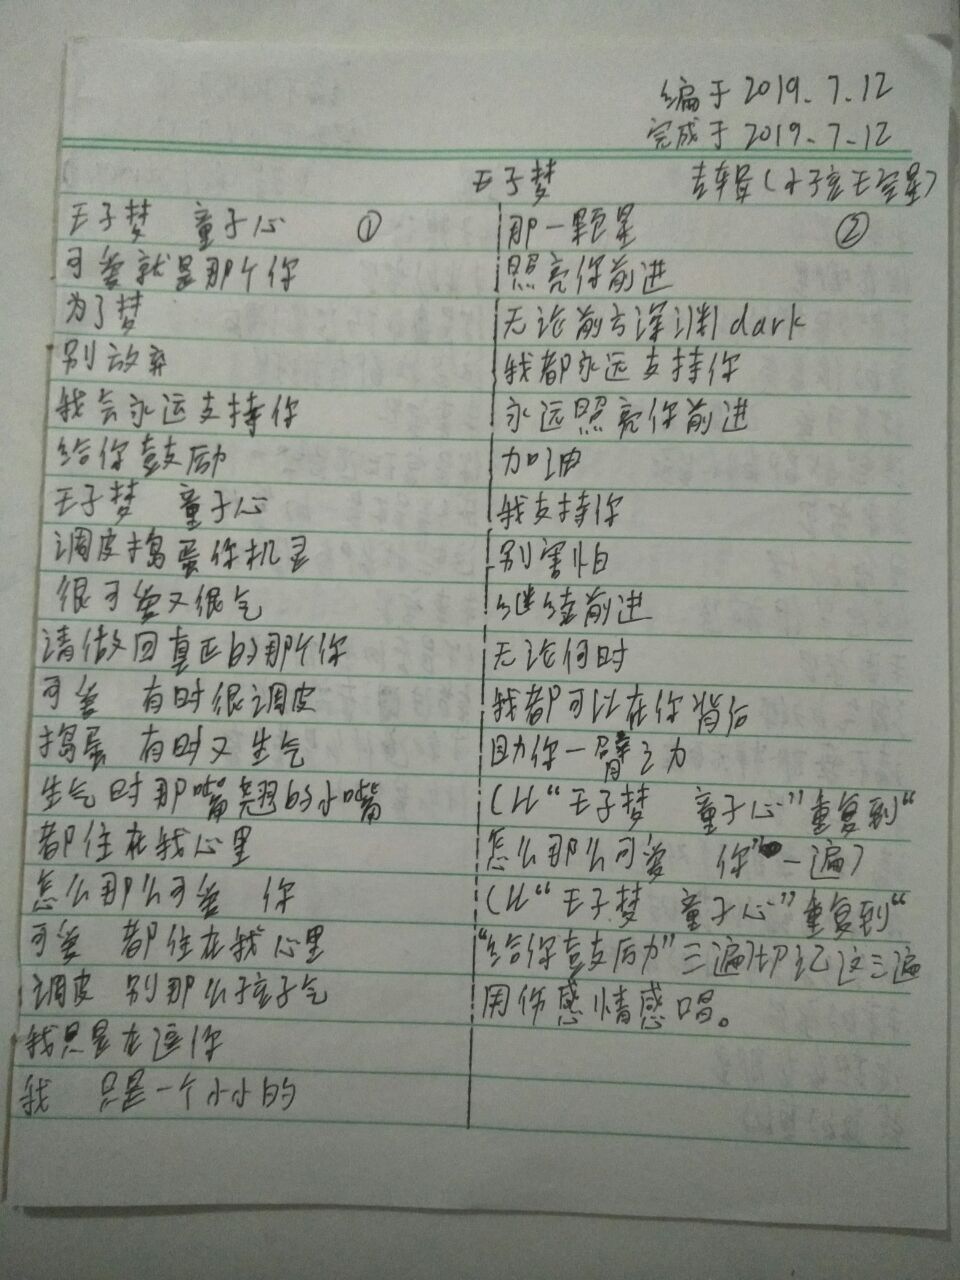 编于2019.7.12
完成于2019.7.12
王子梦
王子梦 童子心 ①
可爱就是那个你
为了梦
别放弃
我会永远支持你
给你鼓励
王子梦 童子心
调皮捣蛋你机灵
很可爱又很气
请做回真正的那个你
可爱 有时很调皮
捣蛋 有时又生气
生气时那嘴翘的小嘴
都住在我心里
怎么那么可爱 你
可爱 都住在我心里
调皮 别那么孩子气
我只是在逗你
我 只是一个小小的
那一颗星 ②
照亮你前进
无论前方深渊dark
我都永远支持你
永远照亮你前进
加油
我支持你
别害怕
继续前进
无论何时
我都可以在你背后
助你一臂之力
(从“王子梦 童子心”重复到“
怎么那么可爱 你”一遍)
(从“王子梦 童子心”重复到“
“给你鼓励”三遍切记这三遍
用伤感情感唱。